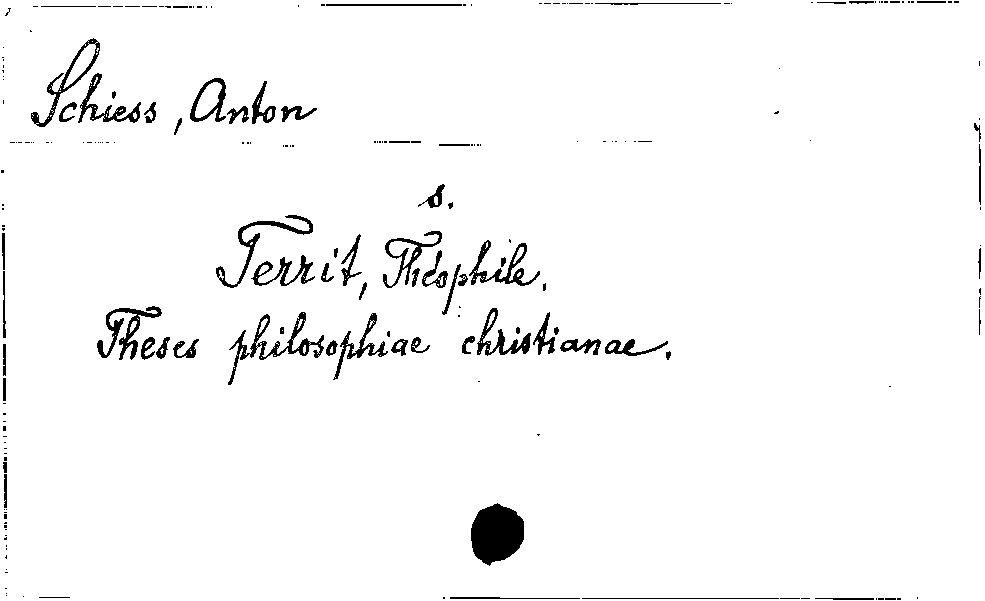 Schiess, Anton
s.
Territ, Théophile.
Theses philosophiae christianae.